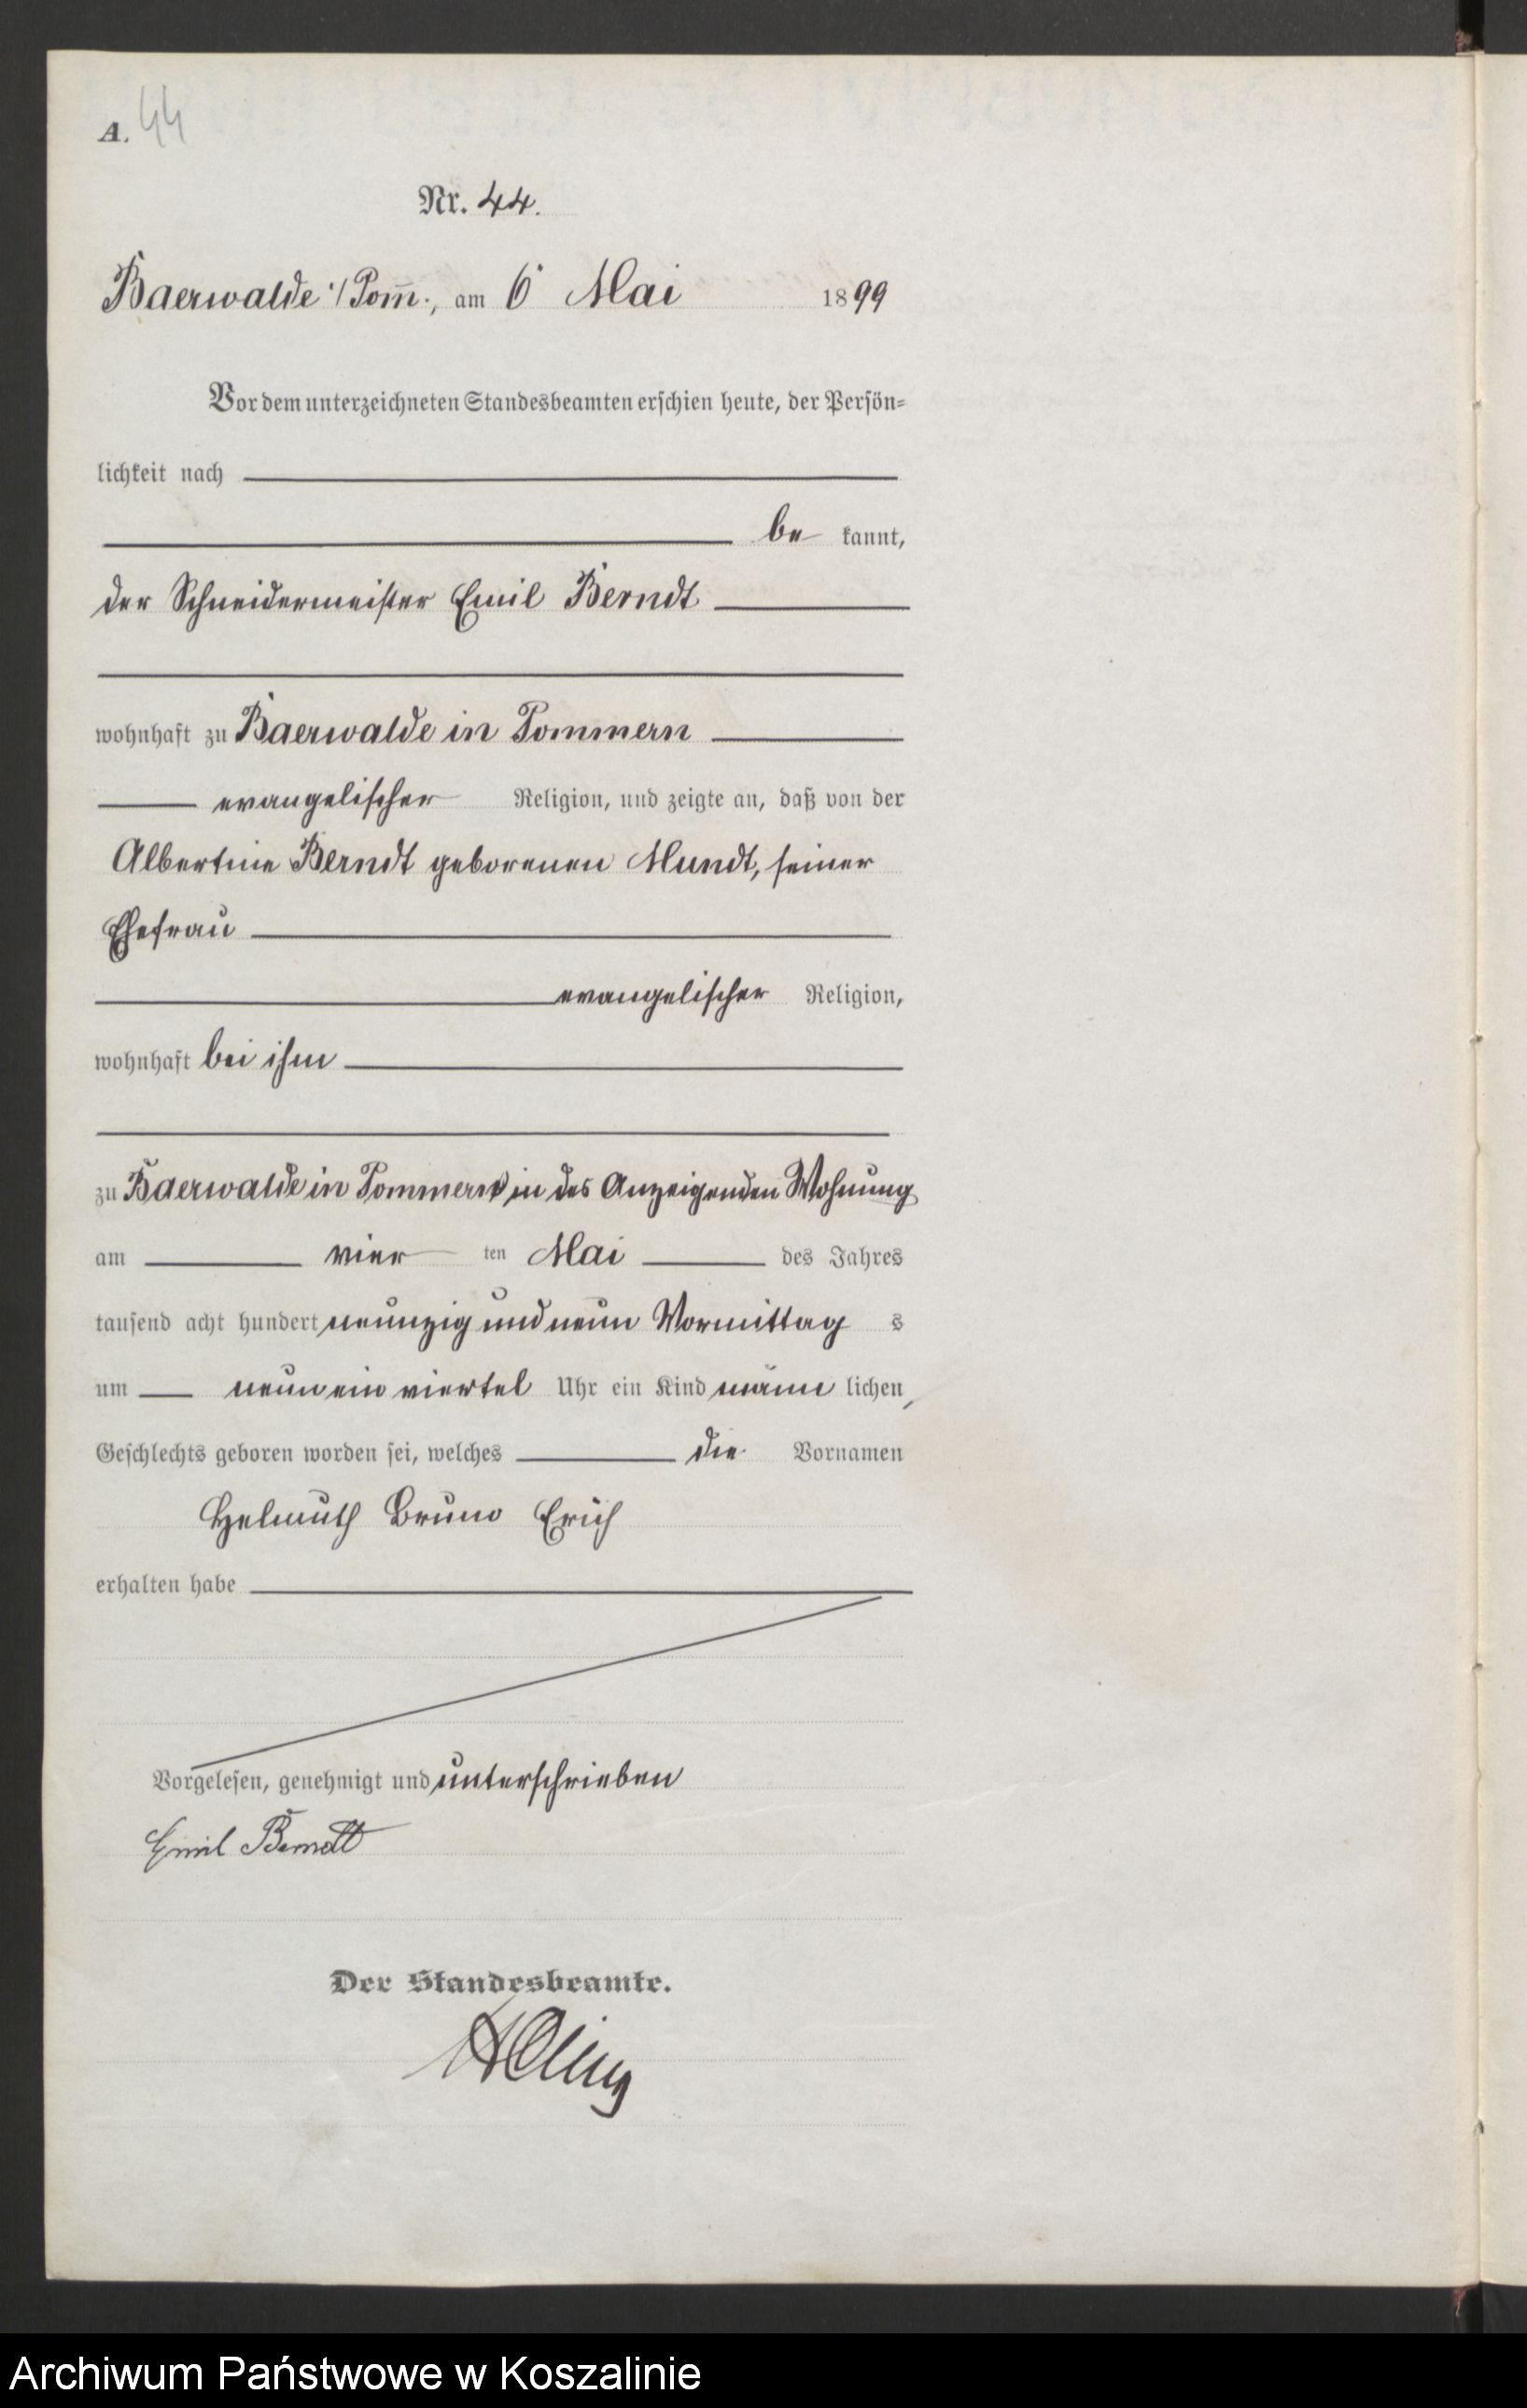 A. 44
Nr. 44.
Baerwalde i/Pom̄., am 6 Mai 1899
Vor dem unterzeichneten Standesbeamten erschien heute, der Persön=
lichkeit nach
be kannt,
der Schneidermeister Emil Berndt
wohnhaft zu Baerwalde in Pommern
evangelischer Religion, und zeigte an, daß von der
Albertine Berndt geborenen Mundt, seiner
Ehefrau
evangelischer Religion,
wohnhaft bei ihm
zu Baerwalde in Pommern in des Anzeigenden Wohnung
am vier ten Mai des Jahres
tausend acht hundert neunzig und neun Vormittag s
um neun ein viertel Uhr ein Kind männ lichen
Geschlechts geboren worden sei, welches die Vornamen
Helmuth Bruno Erich
erhalten habe
Vorgelesen, genehmigt und unterschrieben
Emil Berndt
Der Standesbeamte.
Archiwum Państwowe w Koszalinie